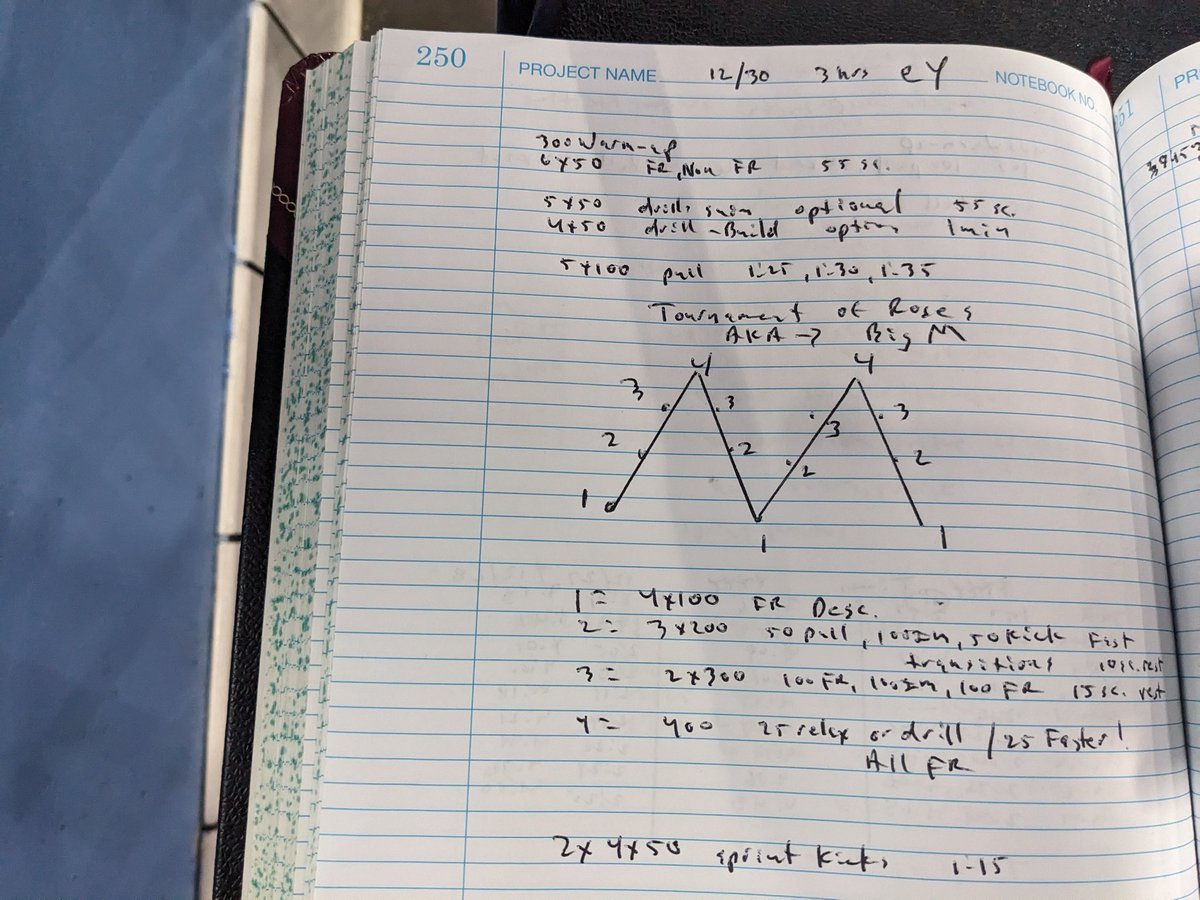 250 PROJECT NAME 12/30 3 hrs eY NOTEBOOK NO.
300 Warm-up
6x50 FR, Non FR 55 sc.
5x50 drill, swim optional 55 sc.
4x50 drill-Build option 1min
5x100 pull 1:25, 1:30, 1:35
Tournament of Roses
AKA → Big M
4 4
3 3 3 3
2 2 2 2
1 1 1
1= 4x100 FR Desc.
2= 3x200 50 pull, 100Im, 50 Kick Fast
transitions 10sc. rest
3= 2x300 100 FR, 100Im, 100 FR 15 sc. rest
4= 400 25 relax or drill / 25 Faster!
All FR
2x 4x50 sprint kicks 1-15
251
PR